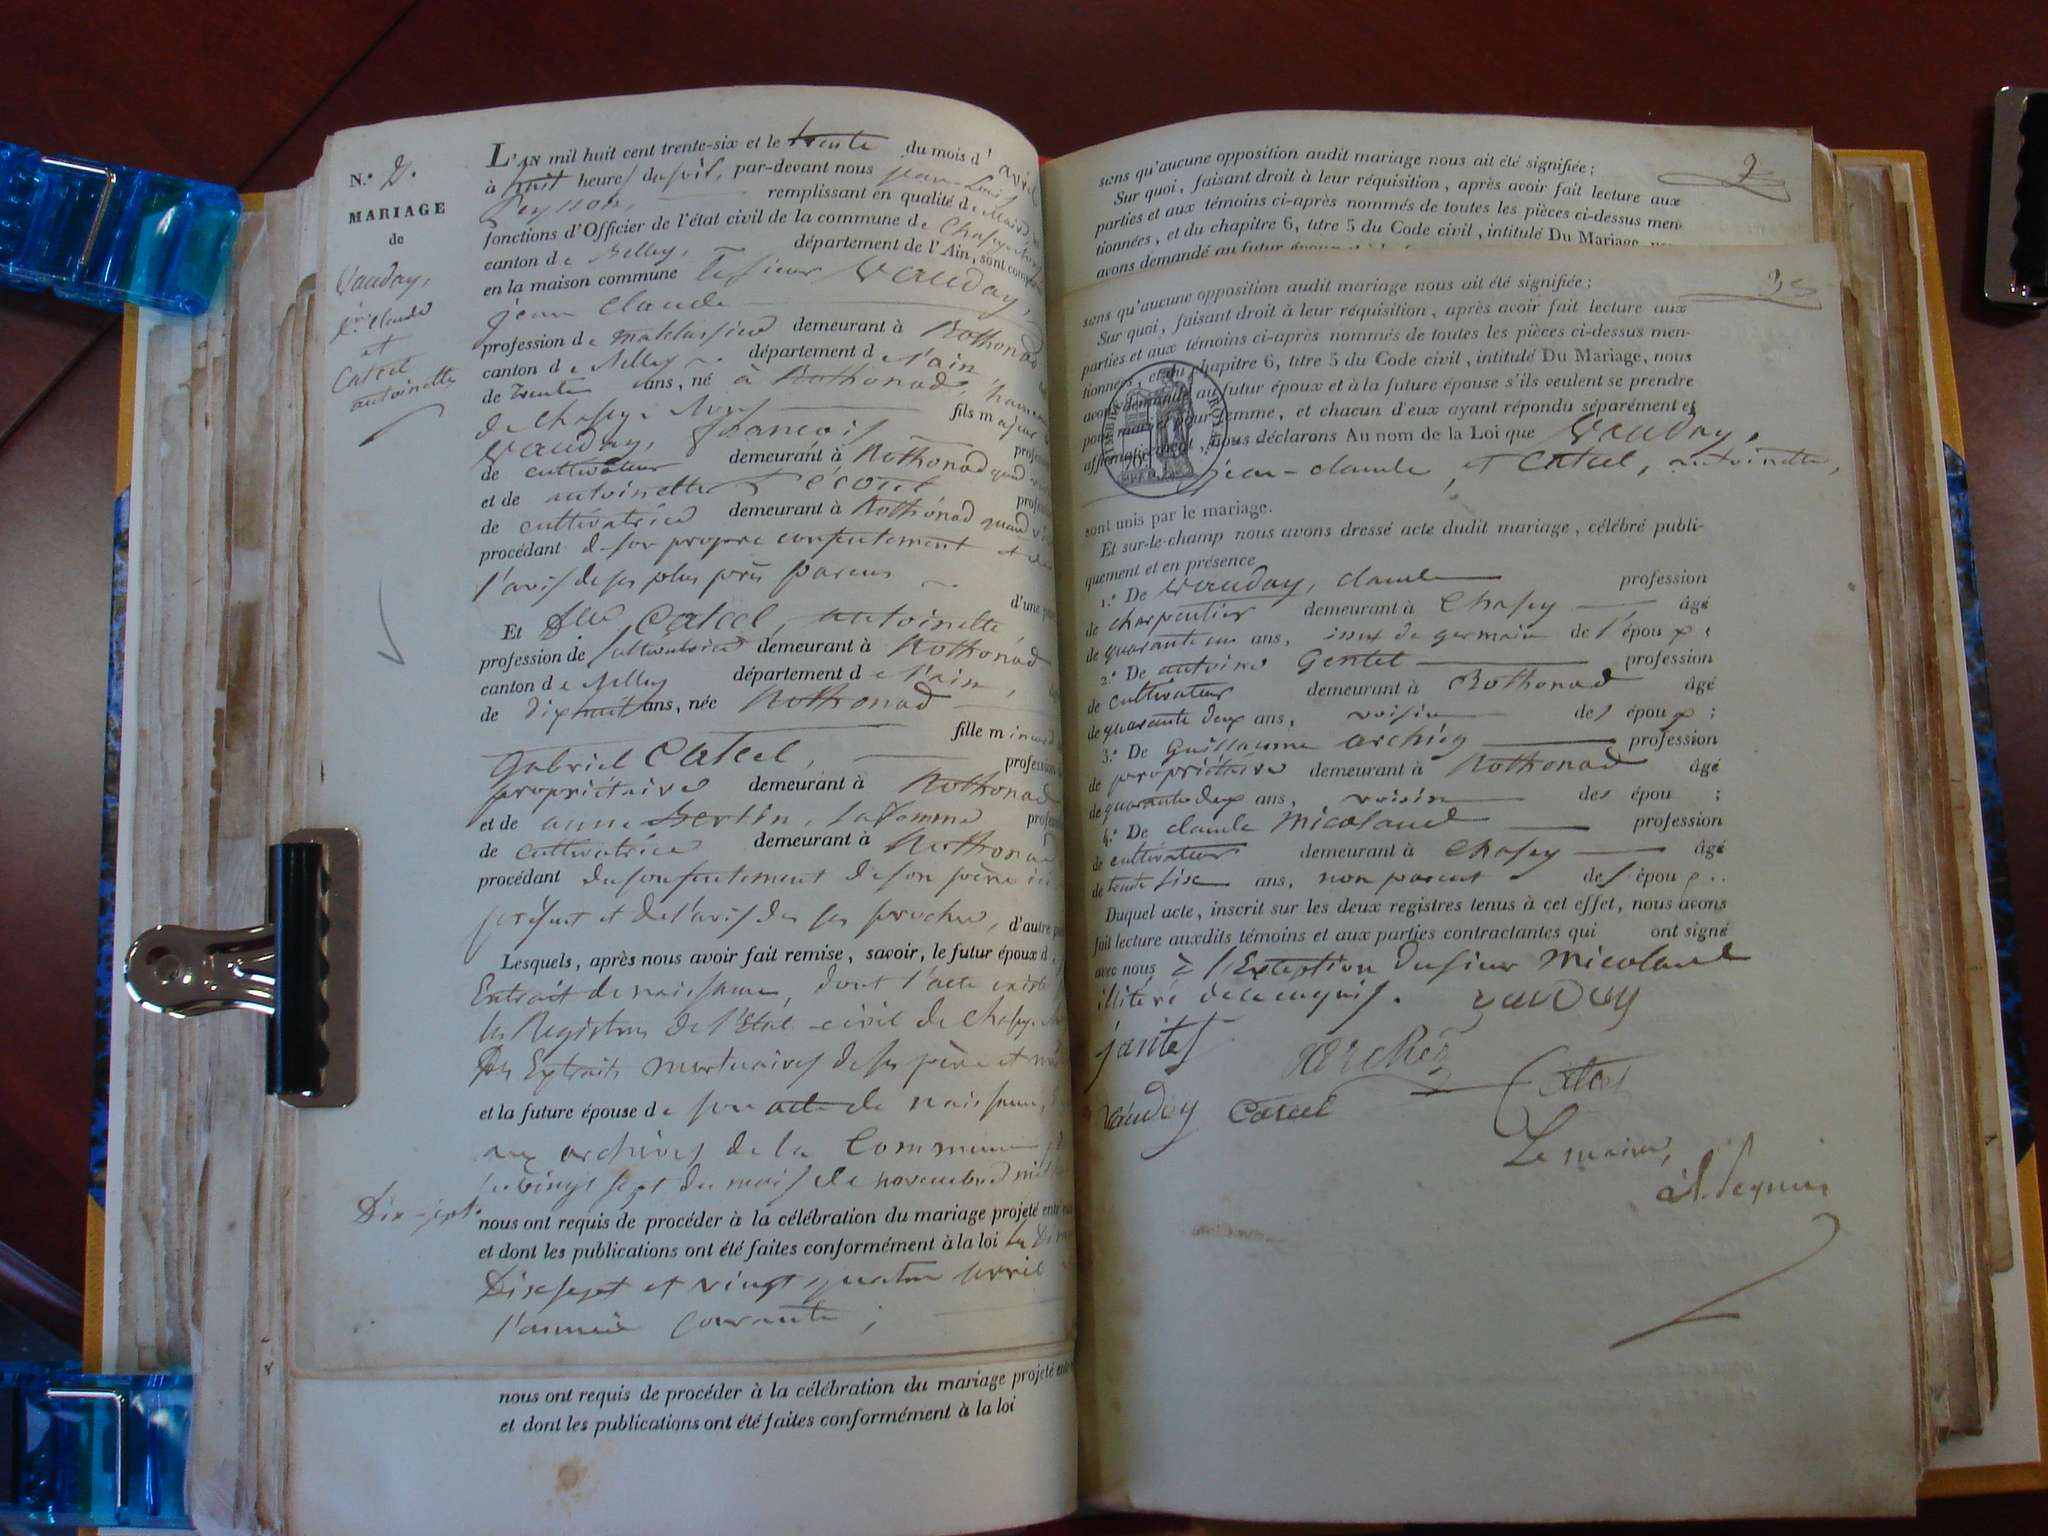 N.º 2.
MARIAGE
de
Vauday,
Jn. Claude
et
Catcel
antoinette
L'AN mil huit cent trente-six et le trente du mois d' avril
à huit heures du soir, par-devant nous jean-Louis
remplissant en qualité de Maire
fonctions d'Officier de l'état civil de la commune de Chasey
canton de Belley, département de l'Ain, sont comparus
en la maison commune Le sieur Vauday,
jean claude
profession de demeurant à Rothonod
canton de Belley département de l'ain,
de trente ans, né à Rothonod, hameau
de Chasey fils majeur
Vauday, francois
de cultivateur demeurant à Rothonod quand
et de antoinette
de cultivatrice demeurant à Rothonod quand
procédant de son propre consentement et de
l'avis de ses plus près parens
d'une part
Et Dlle Catcel, antoinette,
profession de cultivatrice demeurant à Rothonod
canton de Belley département de l'ain,
de dix huit ans, née Rothonod
fille mineure
Gabriel Catcel, profession
propriétaire demeurant à Rothonod
et de anne Bertin, sa femme
de cultivatrice demeurant à Rothonod
procédant du consentement de son père ici
présent et de l'avis de ses proches, d'autre part
Lesquels, après nous avoir fait remise, savoir, le futur époux d
Extrait de naissance, dont l'acte existe
les Registres de l'Etat-civil de Chasey
Des Extraits mortuaires de ses père et mère
et la future épouse de son acte de naissance,
aux archives de la Commune
le vingt sept du mois de novembre mil
Dix-sept.
nous ont requis de procéder à la célébration du mariage projeté entre eux
et dont les publications ont été faites conformément à la loi les
Dix sept et vingt quatre avril
l'année courante ;
nous ont requis de procéder à la célébration du mariage projeté entre
et dont les publications ont été faites conformément à la loi
2
sens qu'aucune opposition audit mariage nous ait été signifiée ;
Sur quoi, faisant droit à leur réquisition, après avoir fait lecture aux
parties et aux témoins ci-après nommés de toutes les pièces ci-dessus men-
tionnées, et du chapitre 6, titre 5 du Code civil, intitulé Du Mariage,
avons demandé au futur époux
sens qu'aucune opposition audit mariage nous ait été signifiée ;
Sur quoi, faisant droit à leur réquisition, après avoir fait lecture aux
parties et aux témoins ci-après nommés de toutes les pièces ci-dessus men-
tionnées, et du chapitre 6, titre 5 du Code civil, intitulé Du Mariage, nous
avons demandé au futur époux et à la future épouse s'ils veulent se prendre
pour mari et pour femme, et chacun d'eux ayant répondu séparément et
affirmativement, nous déclarons Au nom de la Loi que Vauday,
jean-claude, et Catcel, antoinette,
sont unis par le mariage.
Et sur-le-champ nous avons dressé acte dudit mariage, célébré publi-
quement et en présence
1.º De Vauday, claude profession
de charpentier demeurant à Chasey âgé
de quarante un ans, issu de germain de l'époux ;
2.º De antoine Gentet profession
de cultivateur demeurant à Rothonod âgé
de quarante deux ans, voisin des époux ;
3.º De Guillaume archiez profession
de propriétaire demeurant à Rothonod âgé
de quarante deux ans, voisin des épou ;
4.º De claude Micolaud profession
de cultivateur demeurant à Chasey âgé
de trente six ans, non parent des épou
Duquel acte, inscrit sur les deux registres tenus à cet effet, nous avons
fait lecture auxdits témoins et aux parties contractantes qui ont signé
avec nous à l'Exception du sieur Micolaud
illitéré de ce enquis. vauday
jantet
archiez Catcel
Vauday Catcel
Le maire,